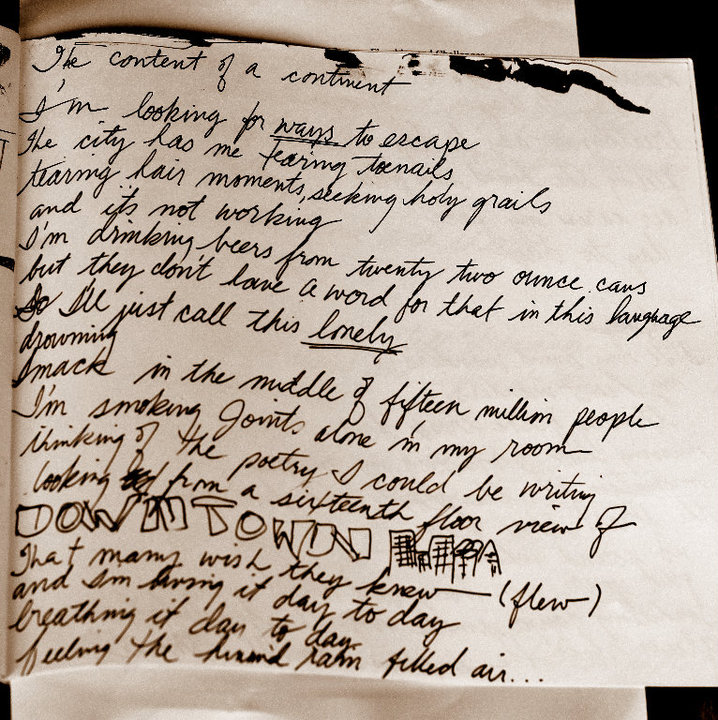 The content of a continent
I'm looking for ways to escape
the city has me tearing toenails
tearing hair moments, seeking holy grails
and it's not working
I'm drinking beers from twenty two ounce cans
but they don't have a word for that in this language
So I'll just call this lonely
drowning
smack in the middle of fifteen million people
I'm smoking joints alone in my room
thinking of the poetry I could be writing
looking from a sixteenth floor view of
DOWNTOWN
That many wish they knew — (flew)
and I'm living it day to day
breathing it day to day
feeling the humid rain filled air...